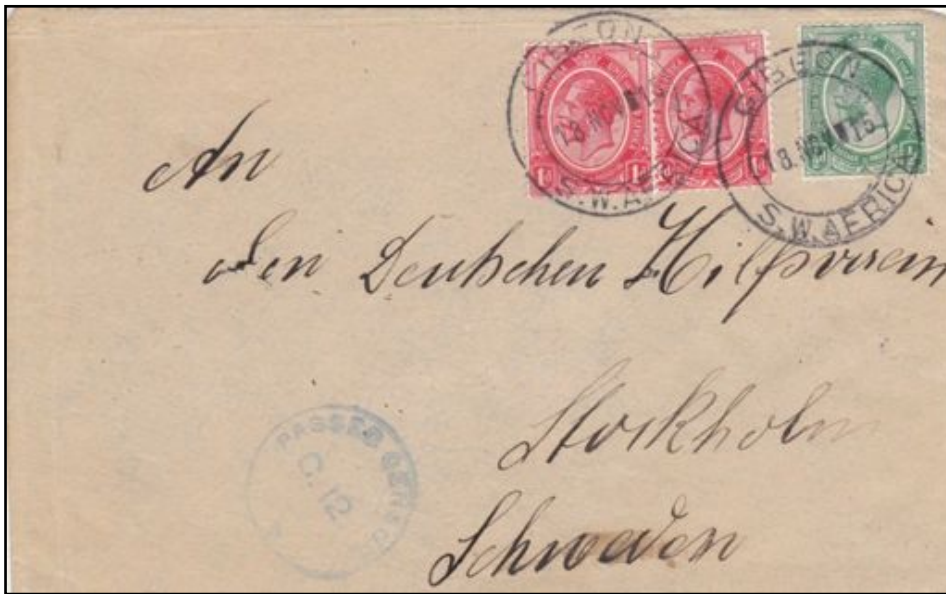 GIBEON
18 NOV 15
S.W.AFRICA
GIBEON
18 NOV 15
S.W.AFRICA
1d
1d
An
den Deutschen Hilfsverein
Stockholm
Schweden
PASSED CENSOR
C. 12